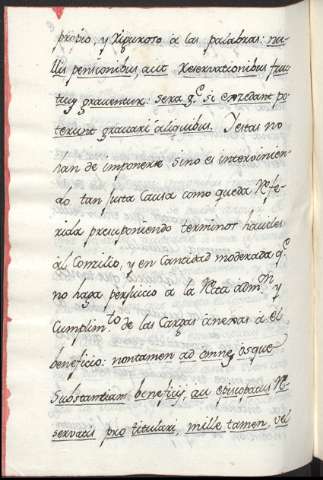 propio, y riguroso â las palabras: nu-
llis pensionibus, aut reservationibus fruc-
tuu graventur: sera q.e si excedant po-
terunt gravari aliquibus. Y estas no
han de imponerse sino es intervinien-
do tan justa Causa como queda Refe-
rida presuponiendo terminos haviles
âl Conzilio, y en Cantidad moderada q.e
no haga perjuicio â la Recta âdm.on y
Cumplim.to de las Cargas ânexas â el
beneficio: non tamen ad omnes usque
Substantiam beneficij, au episcopatus Re-
servatis pro titulari, mille tamen, vel